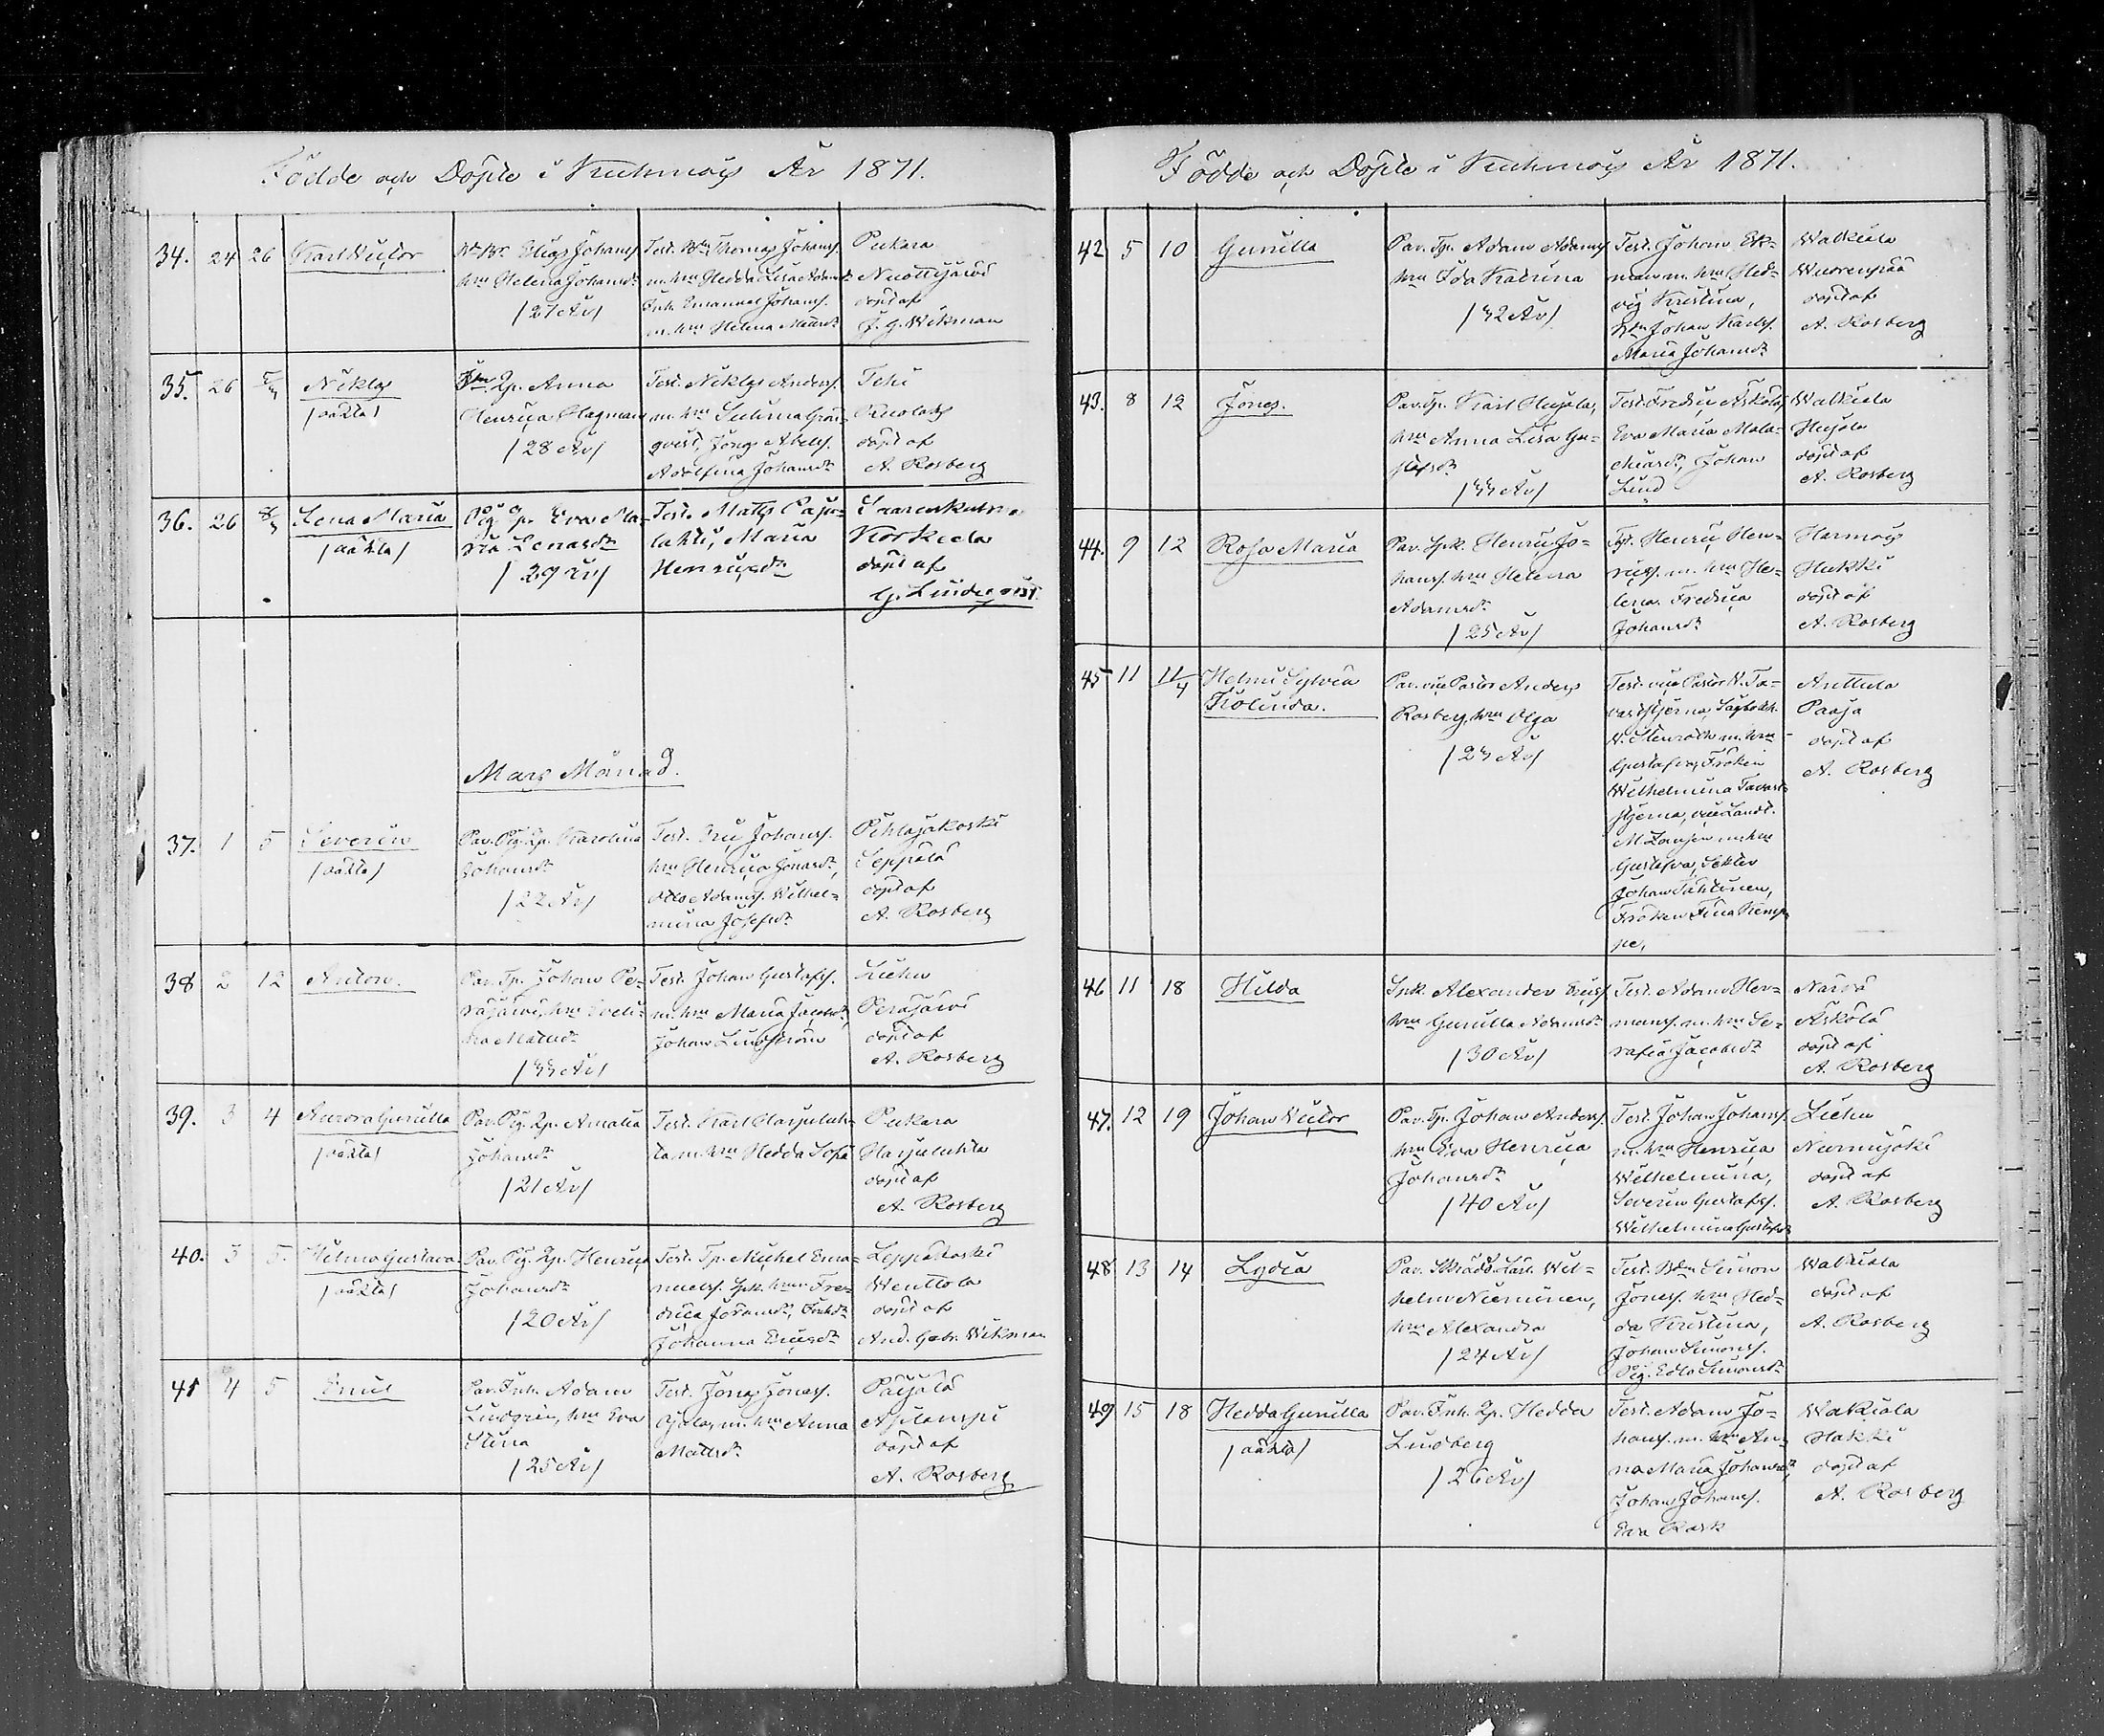 Födde och Döpte i Kuhmois År 1871.
34. 24 26 Karl Victor
Elias Johans.
hru Helena Johansdr
/27 År/
Test. Thomas Johans.
m. hru Hedda Lisa Adamsdr
Inh. Emanuel Johans.
m. hru Helena Mattsdr
Pukara
Nuottijärvi
döpt af
J. G. Wikman
35. 26 Niklas
/oäkta/
Qp. Anna
Henrica Hagman
/28 År/
Test. Niklas Anders.
m. hru Grön-
qvist, Jonas Abels.
Adolfina Johansdr
Tehi
döpt af
A. Rosberg
36. 26 Lena Maria
/oäkta/
Pig. Qp. Eva Ma-
ria Lenasdr
/29 År/
Test. Matts Paju-
lahti, Maria
Henricsdr
Saarenkulma
Korkeela
döpt af
G. Lindeqvist
Mars Månad.
37. 1 5 Severin
/oäkta/
Pav. Pig. Qp. Karolina
Johansdr
/22 År/
Test. Johans.
hru Henrica Jonasdr,
Otto Adams. Wilhel-
mina Josefsdr
Pihlajakoski
Seppälä
döpt af
A. Rosberg
38 2 12 Anton.
Pav. Tp. Johan Pe-
räjärvi, hru Eveli-
na Mattsdr
/33 År/
Test. Johan Gustafs.
m. hru Maria Jacobsdr,
Johan Lindström
Lichu
Peräjärvi
döpt af
A. Rosberg
39. 3 4 Aurora Gunilla
/oäkta/
Pav. Pig. Qp. Amalia
Johansdr
/21 År/
Test. Karl Harjulah-
ta m. hru Hedda Sofia
Pukara
Harjulahta
döpt af
A. Rosberg
40. 3 5. Hilma Gustava
/oäkta/
Pav. Pig. Qp. Henrica
Johansdr
/20 År/
Test. Tp. Michel Ema-
nuels. Spk. hru Fre-
drica Johansdr,
Johanna Ericsdr
Leppäkoski
Wenttola
döpt af
And. Gabr. Wikman
41 4 5 Emil
Pav. Inh. Adam
Lindgrén, hru Eva
Stina
/25 År/
Test. Jonas Jonass.
Ojala, m. hru Anna
Mattsdr
Päijälä
döpt af
A. Rosberg
Födde och Döpte i Kuhmois År 1871.
42 5 10 Gunilla
Pav. Tp. Adam Adams
hru Ida Katrina
/32 År/
Test. Johan Ek-
man m. hru Hed-
vig Kristina,
Johan Karls.
Maria Johansdr
Walkiala
Wuorenpää
döpt af
A. Rosberg
43. 8 12 Jonas.
Pav. Tp. Karl Hujala,
hru Anna Lisa Gu-
stafsdr
/33 År/
Test. Fredric Äskölä,
Eva Maria Mala-
kiasdr, Johan
Lind
Walkiala
Hujala
döpt af
A. Rosberg
44. 9 12 Rosa Maria
Pav. Spk. Henric Jo-
hans. hru Helena
Adamsdr
/25 År/
Test. Henric Hen-
rics. m. hru He-
lena Fredrica
Johansdr
Harmois
Hukki
döpt af
A. Rosberg
45 11 11/4 Helmi Sylvia
Pav. vice Pastor Anders
Rosberg, hru Olga
/23 År/
Test. vice Pastor K. Ta-
vaststjerna,
m. hru
Gustafva, Fröken
Wilhelmina Tavast-
stjerna, vice Landt.
m. hru
Gustafva,
Johan Tahtinen,
Fröken Fina Kemp-
pe,
Anttula
Paaja
döpt af
A. Rosberg
46 11 18 Hilda
Spk. Alexander Erics.
hru Gunilla Adamsdr
/30 År/
Test. Adam Her-
mans. m. hru Se-
rafia Jacobsdr
Närvä
Äskölä
döpt af
A. Rosberg
47. 12 19 Johan Victor
Pav. Tp. Johan Anders.
hru Eva Henrica
Johansdr
/40 År/
Test. Johan Johans.
m. hru Henrica
Wilhelmina,
Severin Gustafs.
Wilhelmina Gustafsdr
Lichu
Nurmijoki
döpt af
A. Rosberg
48 13 14 Lydia
Pav. Skrädd. Lärl. Wil-
helm Nieminen,
hru Alexandra
/24 År/
Test. Simon
Jonass. hru Hed-
da Kristina,
Johan Simons.
Pig. Edla Simonsdr
Walkiala
döpt af
A. Rosberg
49 15 18 Hedda Gunilla
/oäkta/
Pav. Inh. Qp. Hedda
Lindberg
/26 År/
Test. Adam Jo-
hans. m. hru An-
na Maria Johansdr,
Johan Johans.
Eva Rask
Walkiala
Hakki
döpt af
A. Rosberg